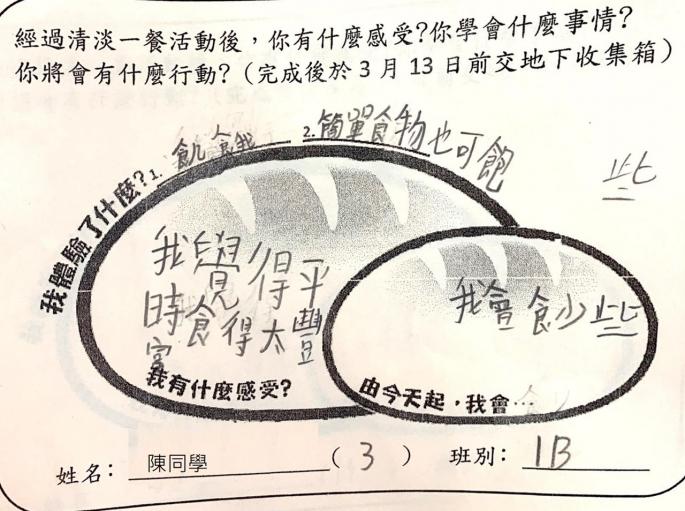 經過清淡一餐活動後，你有什麼感受?你學會什麼事情?
你將會有什麼行動?（完成後於3月13日前交地下收集箱）
我體驗了什麼?1. 飢餓 2. 簡單食物也可飽
些
我覺得平
時食得太豐
富
我有什麼感受?
我會食少些
由今天起，我會…
姓名： 陳同學 （ 3 ） 班別： 1B